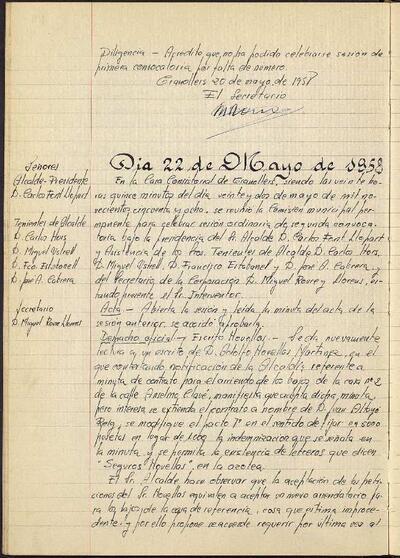 Diligencia - Acredito que, no ha podido celebrarse sesión de
primera convocatoria por falta de número.
Granollers 20 de mayo, de 1958
El Secretario
Señores
Alcalde-Presidente
D. Carlos Font Llopart
Tenientes de Alcalde
D. Carlos Hors
D. Miguel Vistell
D. Fco Estabanell
D. José A. Cabrera
Secretario
D. Miguel Roure Llorens
Dia 22 de Mayo de 1958
En la Casa Consistorial de Granollers, siendo las veinte ho-
ras quince minutos del día veinte y dos de mayo de mil no-
vecientos cincuenta y ocho, se reunió la Comisión municipal per-
manente para celebrar sesión ordinaria de segunda convoca-
toria bajo la presidencia del Sr. Alcalde D. Carlos Font Llopart
y Asistencia de los Sres. Tenientes de Alcalde D. Carlos Hors,
D. Miguel Vistell, D. Francisco Estabanell y D. José A. Cabrera,
y del Secretario de la Corporación D. Miguel Roure y Llorens, es-
tando presente el Sr. Interventor.
Acta - Abierta la sesión y leída la minuta del acta de la
sesión anterior, se acordó aprobarla.
Despacho oficial - Escrito Novellas - Leída nuevamente
lectura a un escrito de D. Adolfo Novellas Martínez, en el
que contestando notificación de la Alcaldía referente a
minuta de contrato para el arriendo de los bajos de la casa nº 2
de la calle Anselmo Clavé, manifiesta que acepta dicha minuta
pero interesa se extienda el contrato a nombre de D. Juan
se modifique el pacto 7º en el sentido de fijar en 5000
pesetas en lugar de la indemnización que se señala en
la minuta y se permita la existencia de letreros que dicen
"Seguros Novellas", en la azotea.
El Sr. Alcalde hace observar que la aceptación de las peti-
ciones del Sr. Novellas equivalen a aceptar un nuevo arrendatario pa-
ra los bajos de la casa de referencia, cosa que estima improce-
dente; y por ello propone se acuerde requerir por última vez al